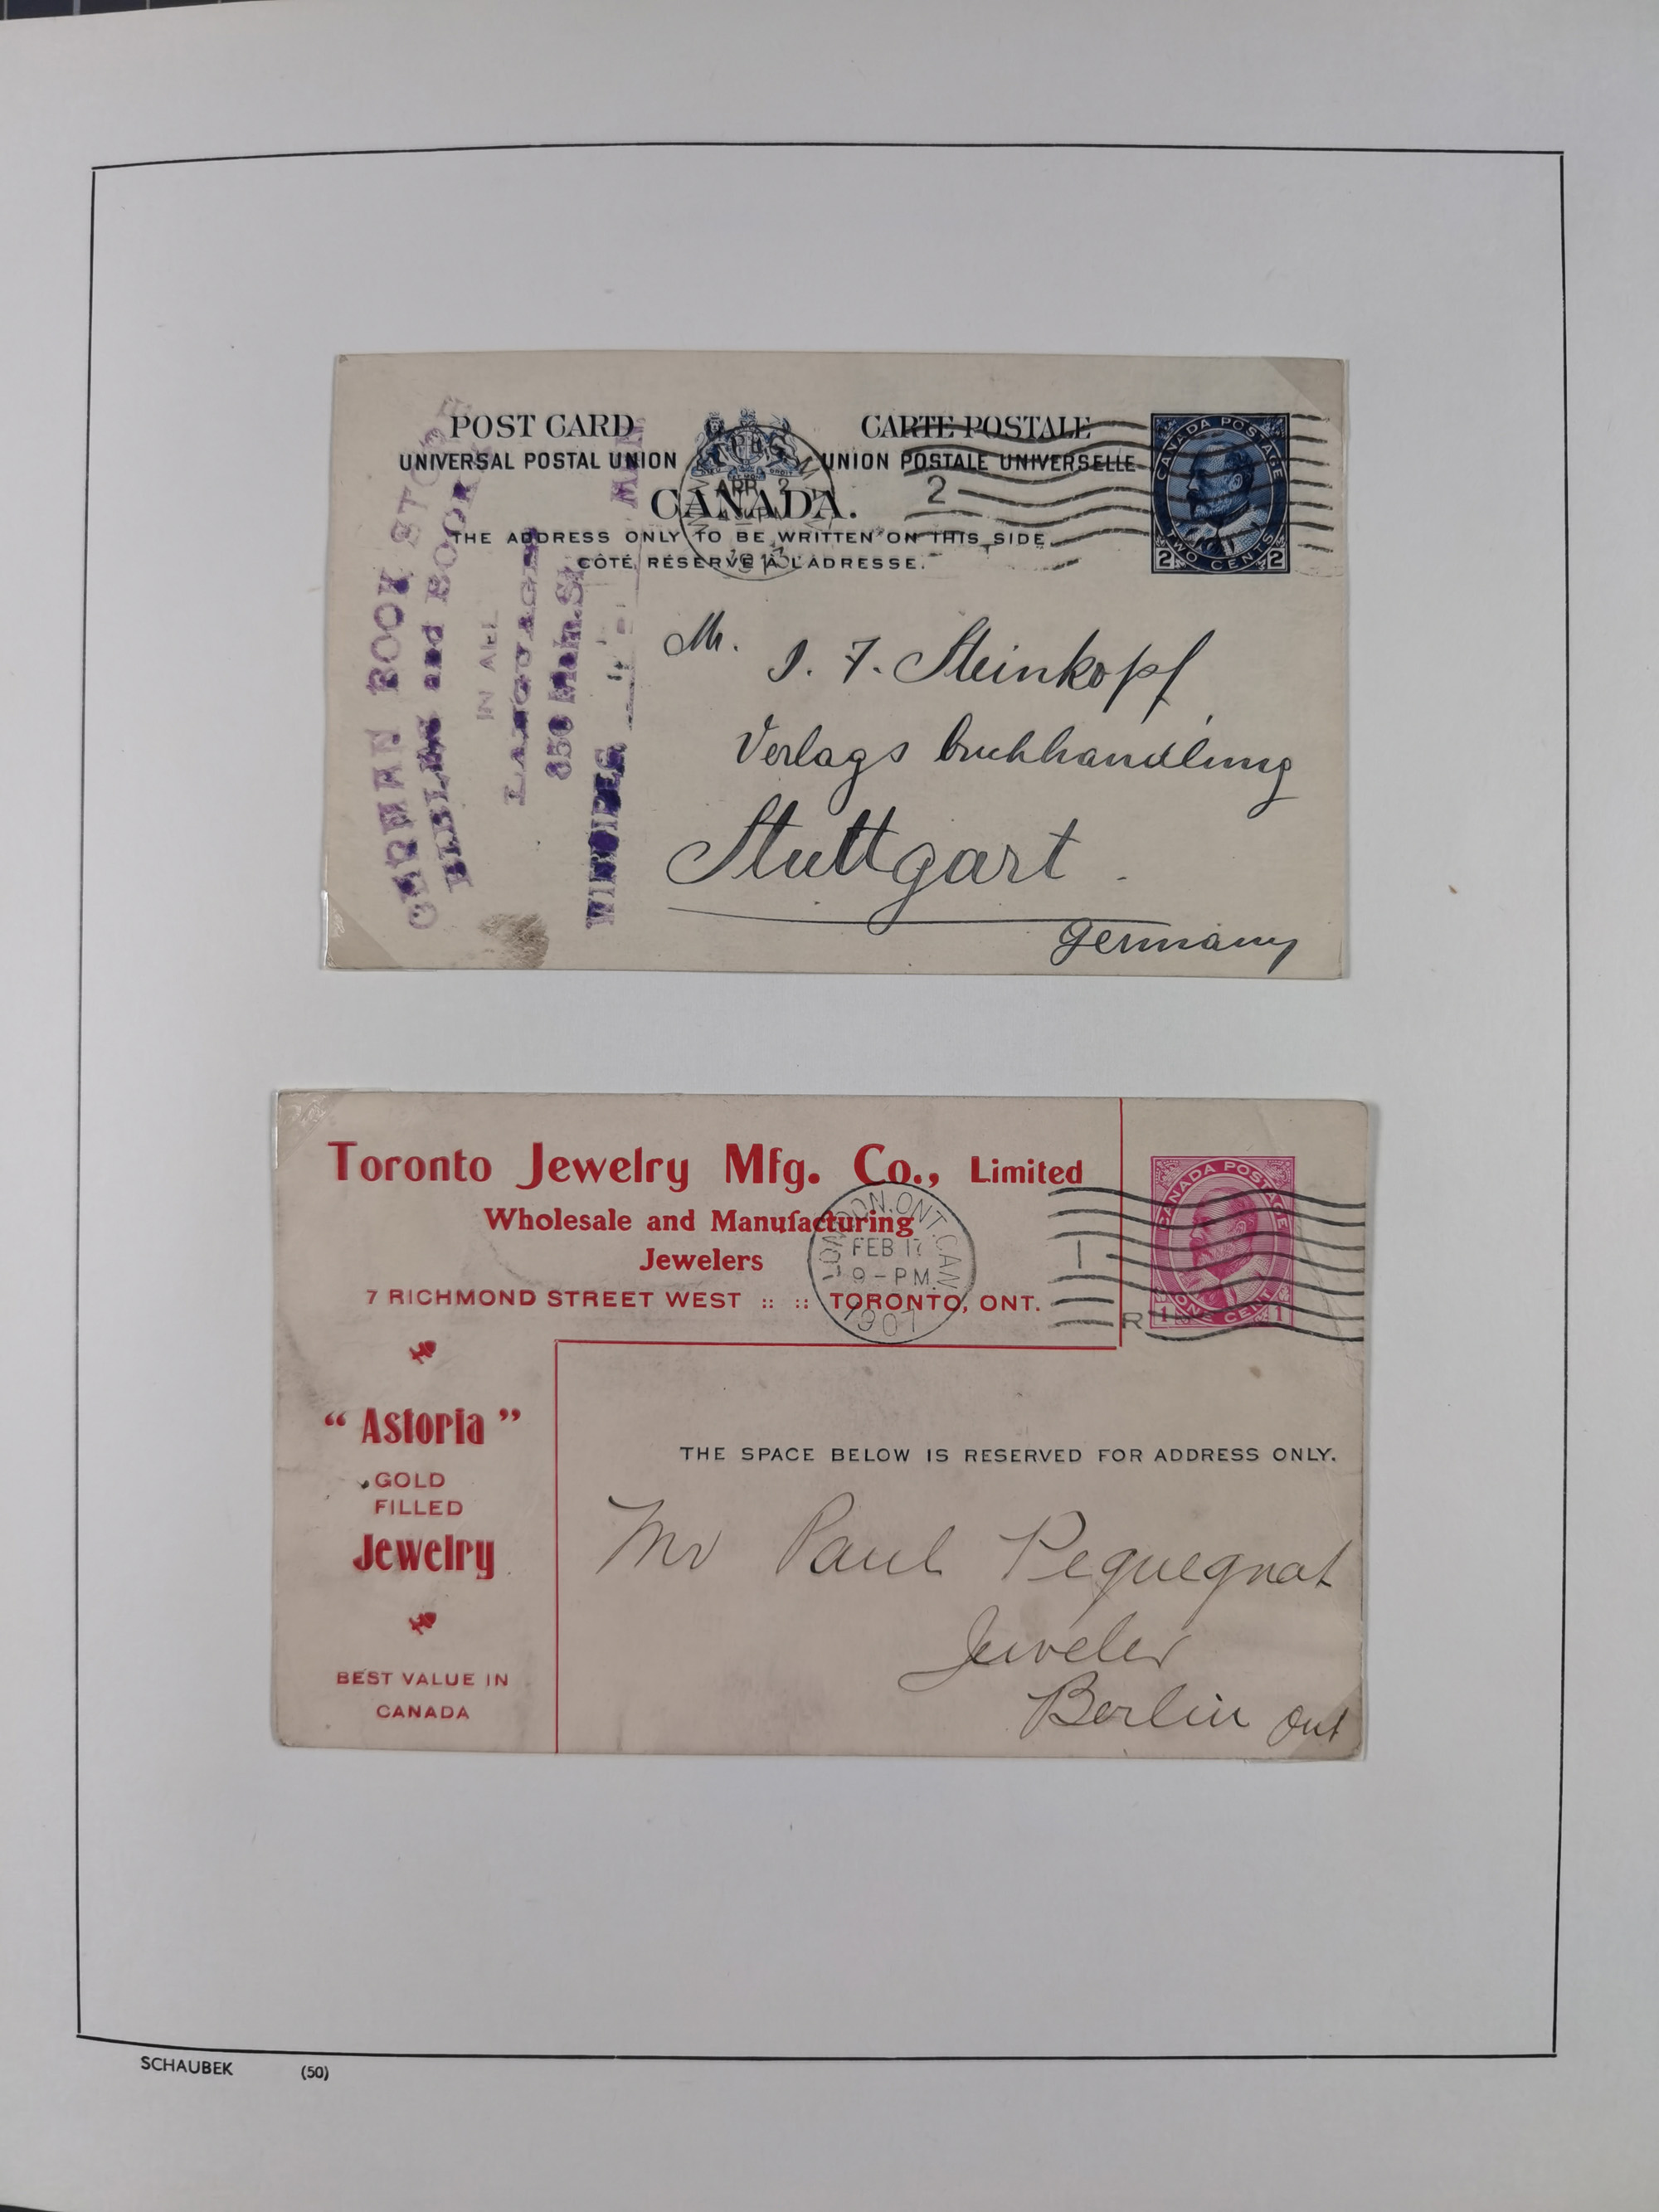 POST CARD CARTE POSTALE
UNIVERSAL POSTAL UNION UNION POSTALE UNIVERSELLE
CANADA.
THE ADDRESS ONLY TO BE WRITTEN ON THIS SIDE
CÔTÉ RÉSERVÉ À L'ADRESSE.
APR 2
2
CANADA POSTAGE
2 TWO CENTS 2
GERMAN BOOK STORE
BIBLES and BOOKS
IN ALL
LANGUAGES
850 Main St.
WINNIPEG MAN
M. J. F. Steinkopf
Verlags buchhandlung
Stuttgart
Germany
Toronto Jewelry Mfg. Co., Limited
Wholesale and Manufacturing
Jewelers
7 RICHMOND STREET WEST :: :: TORONTO, ONT.
LONDON. ONT. CAN.
FEB 17
9 - PM
1907
1
R
CANADA POSTAGE
1 ONE CENT 1
“ Astoria ”
GOLD
FILLED
Jewelry
BEST VALUE IN
CANADA
THE SPACE BELOW IS RESERVED FOR ADDRESS ONLY.
Mr Paul Pequegnat
Jeweler
Berlin Ont
SCHAUBEK (50)